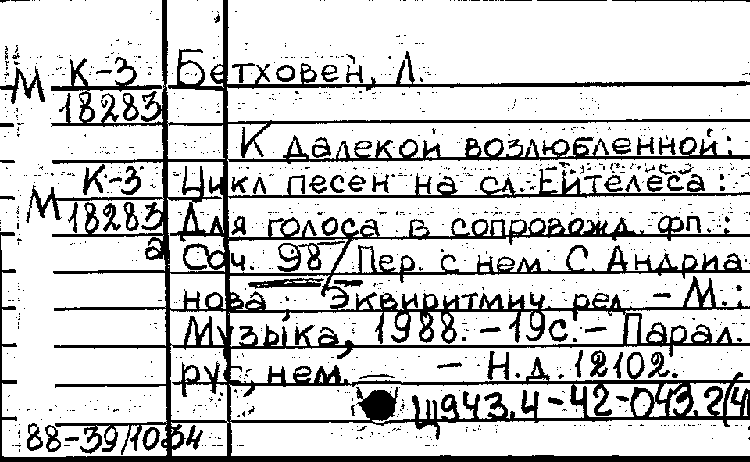 М К-3 Бетховен, Л.
18283
К далекой возлюбленной:
М К-3 Цикл песен на сл. Ейтелеса:
18283 Для голоса в сопровожд. фп.:
а Соч. 98 / Пер. с нем. С. Андриа
нова; Эквиритмич. ред. – М.:
Музыка, 1988. – 19с. – Парал.
рус., нем. – Н.д. 12102.
Щ943.4-42-043.2(4
88-39/1034